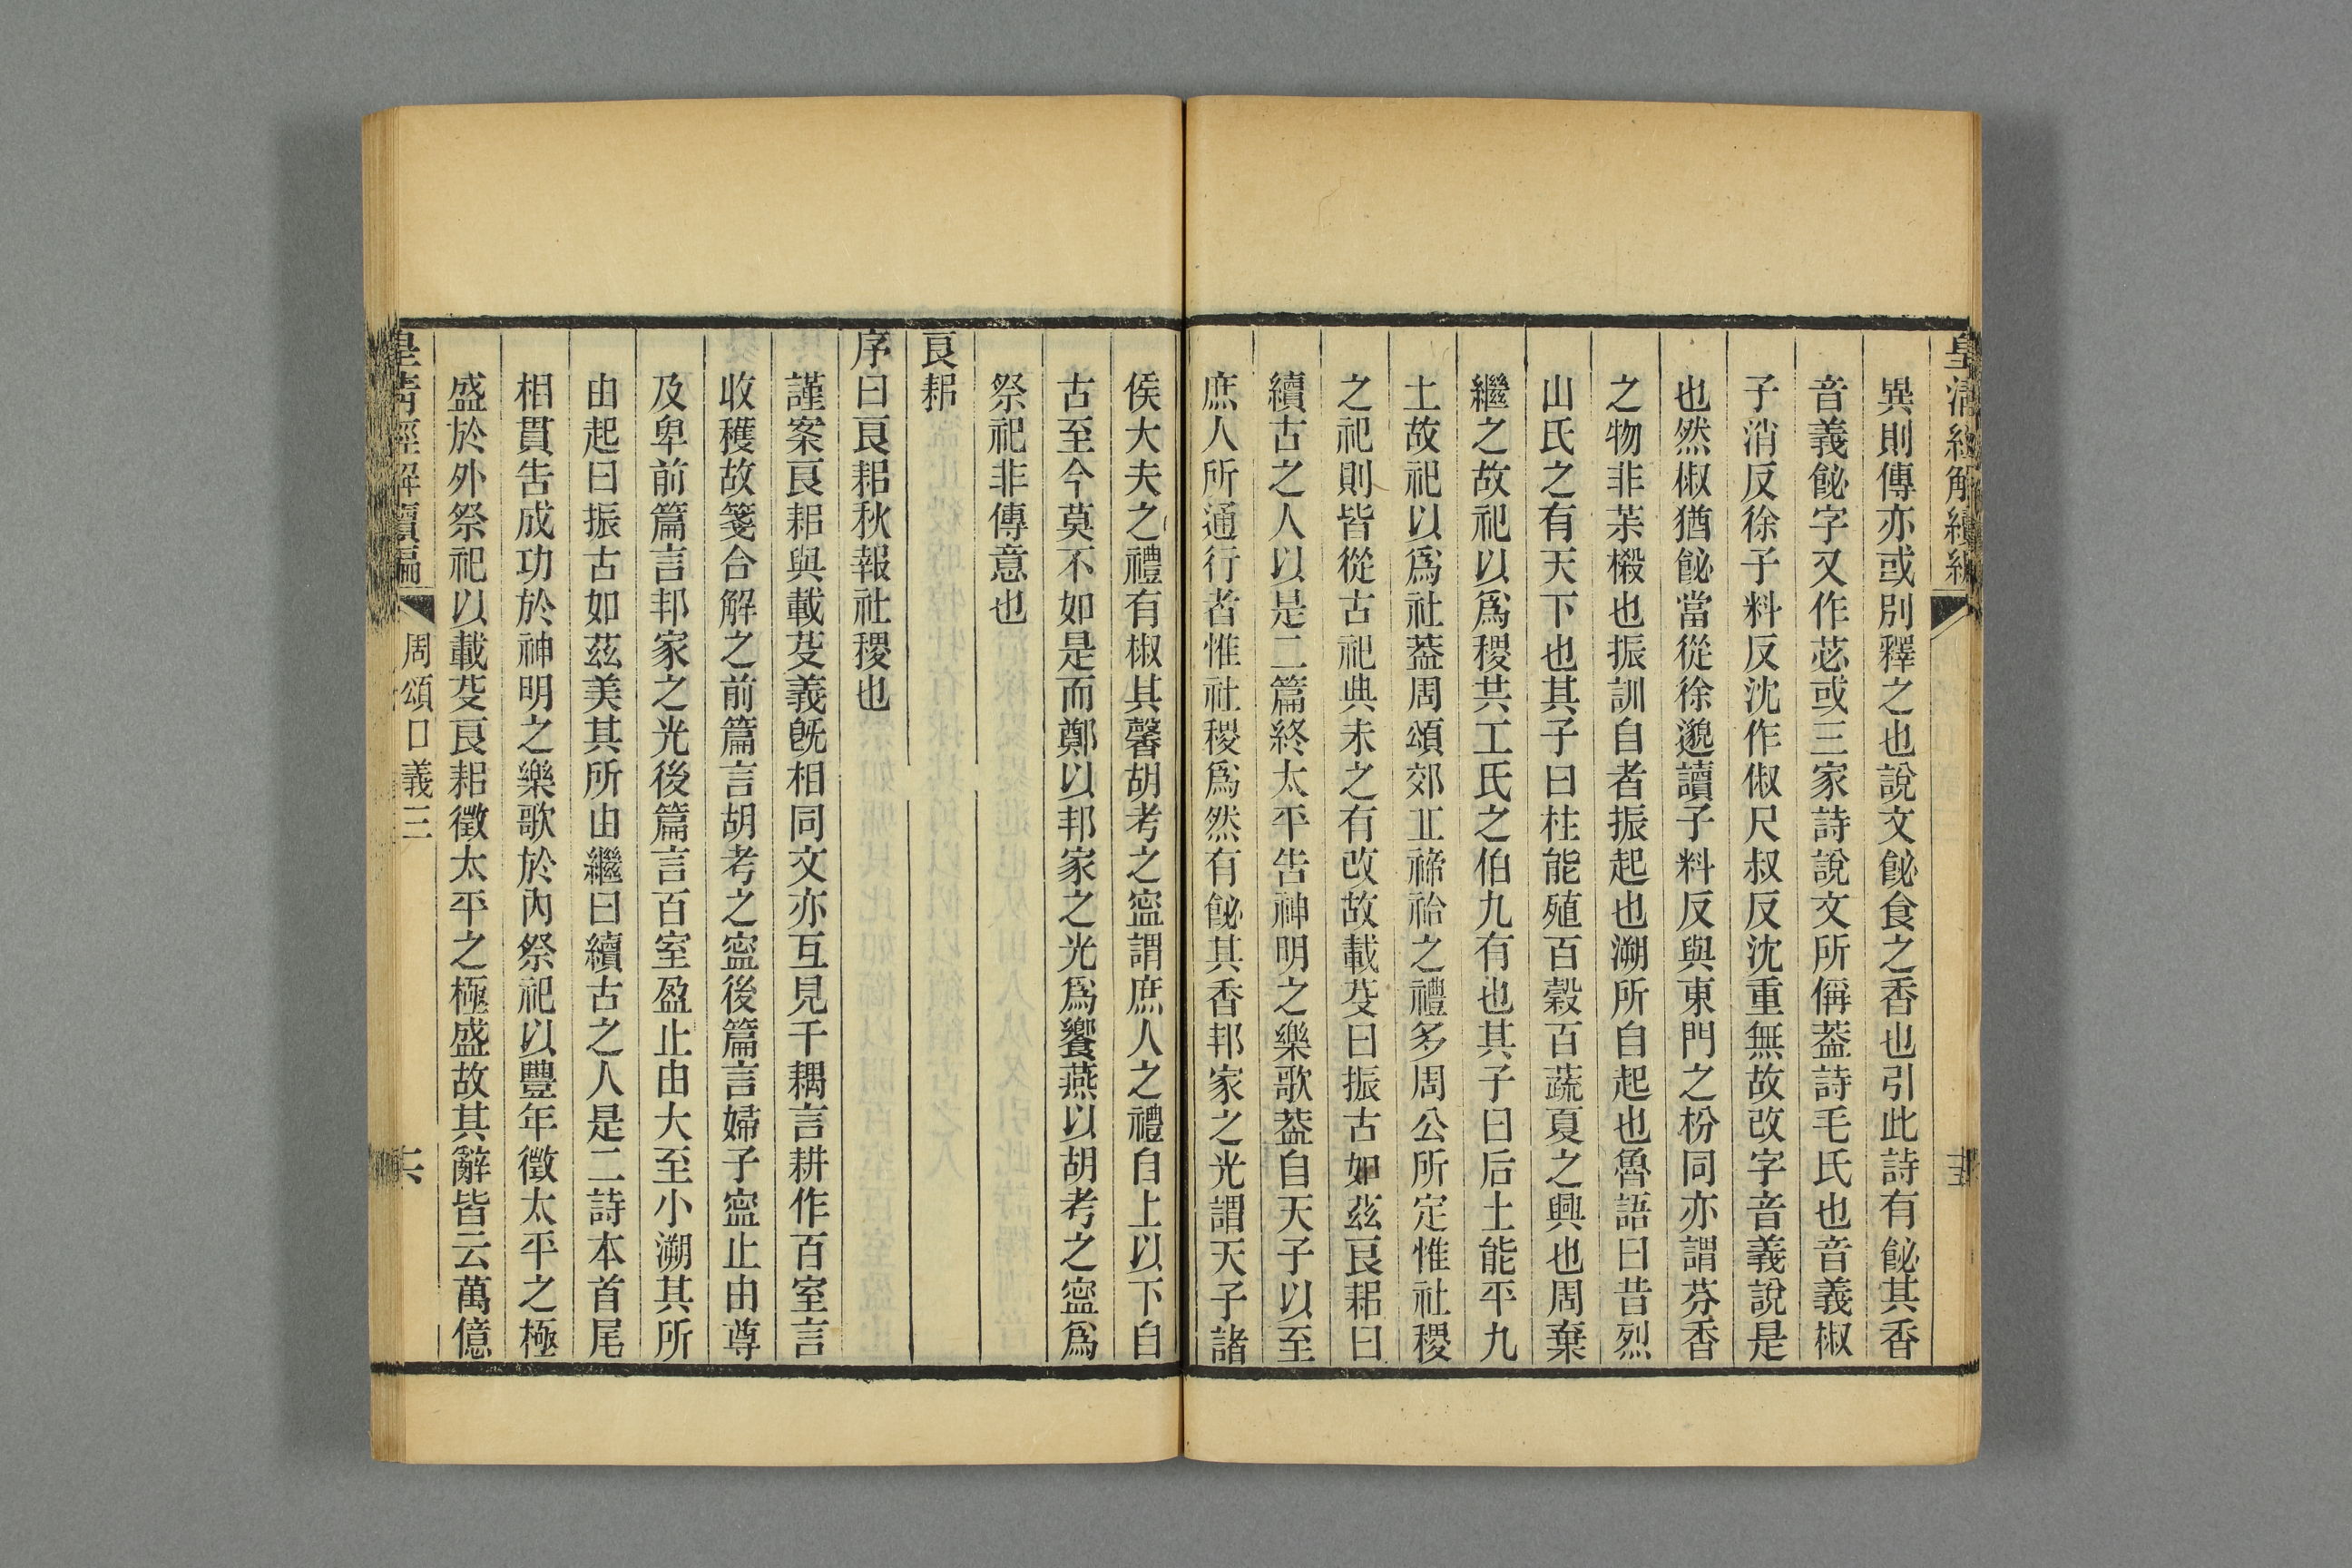 皇清經解續編
異則傳亦或別釋之也說文飶食之香也引此詩有飶其香
音義飶字又作苾或三家詩說文所偁葢詩毛氏也音義椒
子消反徐子料反沈作俶尺叔反沈重無故改字音義說是
也然椒猶飶當從徐邈讀子料反與東門之枌同亦謂芬香
之物非茮樧也振訓自者振起也溯所自起也魯語曰昔烈
山氏之有天下也其子曰柱能殖百穀百蔬夏之興也周棄
繼之故祀以爲稷共工氏之伯九有也其子曰后土能平九
土故祀以爲社葢周頌郊丠禘祫之禮多周公所定惟社稷
之祀則皆從古祀典未之有改故載芟曰振古如茲良耜曰
續古之人以是二篇終太平告神明之樂歌葢自天子以至
庶人所通行者惟社稷爲然有飶其香邦家之光謂天子諸
侯大夫之禮有椒其馨胡考之寍謂庶人之禮自上以下自
古至今莫不如是而鄭以邦家之光爲饗燕以胡考之寍爲
祭祀非傳意也
良耜
序曰良耜秋報社稷也
謹案良耜與載芟義旣相同文亦互見千耦言耕作百室言
收穫故箋合解之前篇言胡考之寍後篇言婦子寍止由尊
及卑前篇言邦家之光後篇言百室盈止由大至小溯其所
由起曰振古如茲美其所由繼曰續古之人是二詩本首尾
相貫告成功於神明之樂歌於內祭祀以豐年徵太平之極
盛於外祭祀以載芟良耜徵太平之極盛故其辭皆云萬億
皇清經解續編
周頌口義三